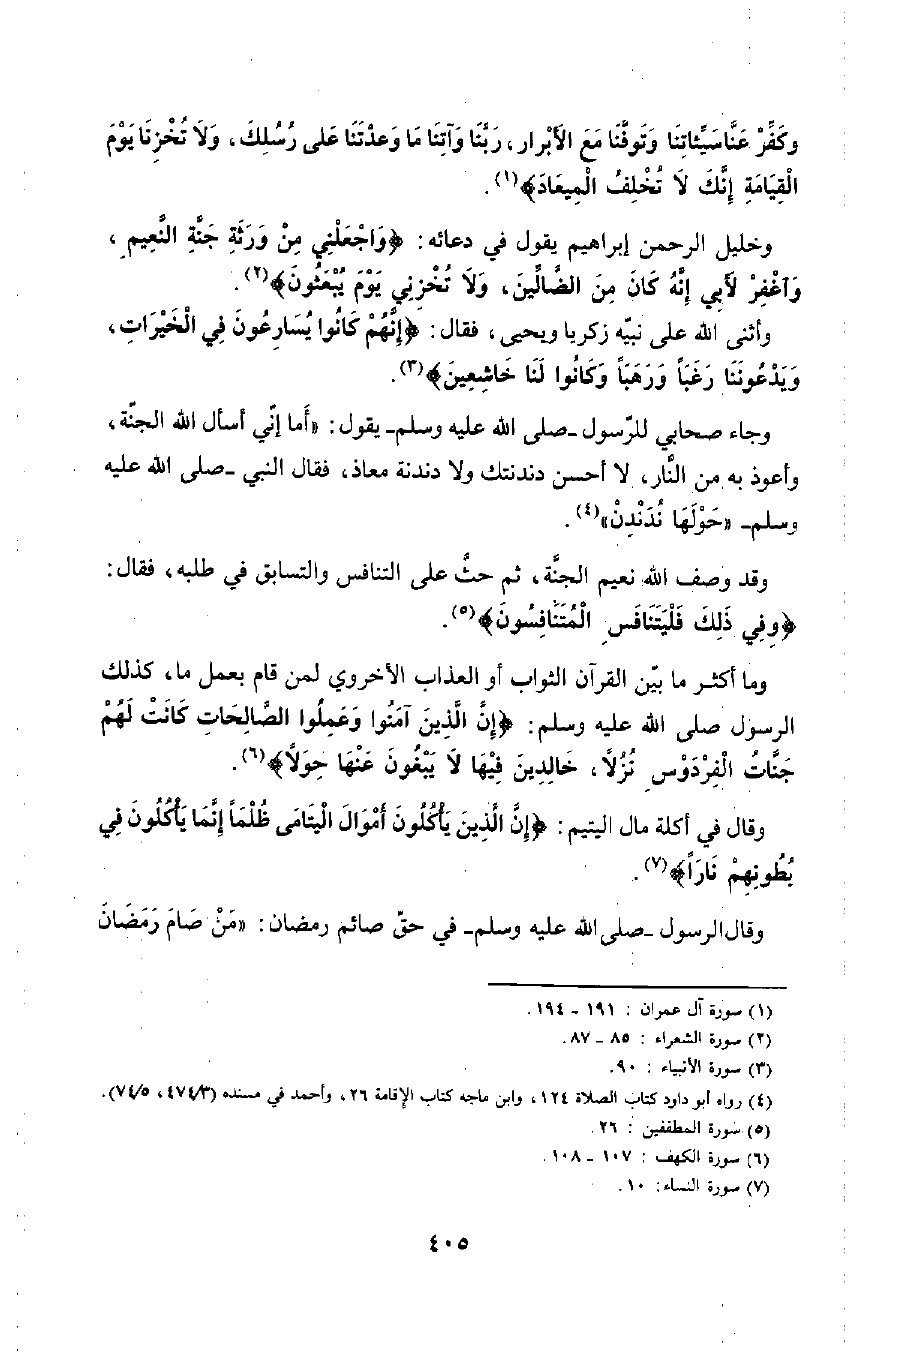 وَكَفِّرْ عَنَّا سَيِّئاتِنَا وَتَوفَّنَا مَعَ الأَبْرار، رَبَّنَا وَآتِنَا مَا وَعدْتَنَا عَلى رُسُلِكَ، وَلَا تُخْزِنَا يَوْمَ
الْقِيَامَةِ إِنَّكَ لَا تُخْلِفُ الْمِيعَادَ﴾(١).
وخليل الرحمن إبراهيم يقول في دعائه: ﴿وَاجْعَلْنِي مِنْ وَرَثَةِ جَنَّةِ النَّعِيمِ،
وَآغْفِرْ لأَبِي إِنَّهُ كَانَ مِنَ الضَّالِّينَ، وَلَا تُخْزِنِي يَوْمَ يُبْعَثُونَ﴾(٢).
وأثنى الله على نبيّه زكريا ويحيى، فقال: ﴿إِنَّهُمْ كَانُوا يُسَارِعُونَ فِي الْخَيْرَاتِ،
وَيَدْعُونَنَا رَغَباً وَرَهَباً وَكَانُوا لَنَا خَاشِعِينَ﴾(٣).
وجاء صحابي للرّسول ـ صلى الله عليه وسلم ـ يقول: «أما إنّي أسأل الله الجنّة،
وأعوذ به من النَّار، لا أحسن دندنتك ولا دندنة معاذ، فقال النبي ـ صلى الله عليه
وسلم ـ «حَوْلَهَا نُدَنْدِنْ»(٤).
وقد وصف الله نعيم الجنَّة، ثم حثَّ على التنافس والتسابق في طلبه، فقال:
﴿وفِي ذَلِكَ فَلْيَتَنَافَسِ الْمُتَنَافِسُونَ﴾(٥).
وما أكثر ما بيّن القرآن الثواب أو العذاب الأخروي لمن قام بعمل ما، كذلك
الرسول صلى الله عليه وسلم: ﴿إِنَّ الَّذِينَ آمَنُوا وَعَمِلُوا الصَّالِحَاتِ كَانَتْ لَهُمْ
جَنَّاتُ الْفِرْدَوْسِ نُزُلًا، خَالِدِينَ فِيْهَا لَا يَبْغُونَ عَنْهَا حِوَلاً﴾(٦).
وقال في أكلة مال اليتيم: ﴿إِنَّ الَّذِينَ يَأْكُلُونَ أَمْوَالَ الْيَتَامَى ظُلْمَاً إِنَّمَا يَأْكُلُونَ فِي
بُطُونِهِمْ نَارَاً﴾(٧).
وقال الرسول ـ صلى الله عليه وسلم ـ في حقّ صائم رمضان: «مَنْ صَامَ رَمَضَانَ
(١) سورة آل عمران : ١٩١ ـ ١٩٤.
(٢) سورة الشعراء : ٨٥ ـ ٨٧.
(٣) سورة الأنبياء : ٩٠.
(٤) رواه أبو داود كتاب الصلاة ١٢٤، وابن ماجه كتاب الإقامة ٢٦، وأحمد في مسنده (٤٧٤/٣، ٧٤/٥).
(٥) سورة المطففين : ٢٦.
(٦) سورة الكهف : ١٠٧ ـ ١٠٨.
(٧) سورة النساء: ١٠.
٤٠٥